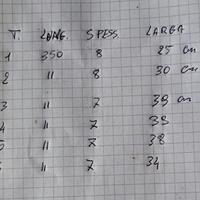 T. LUNG. SPESS. LARGA
1 350 8 25 cm
2 " 8 30 cm
3 " 7 39 cm
4 " 7 39
5 " 7 38
6 " 7 34